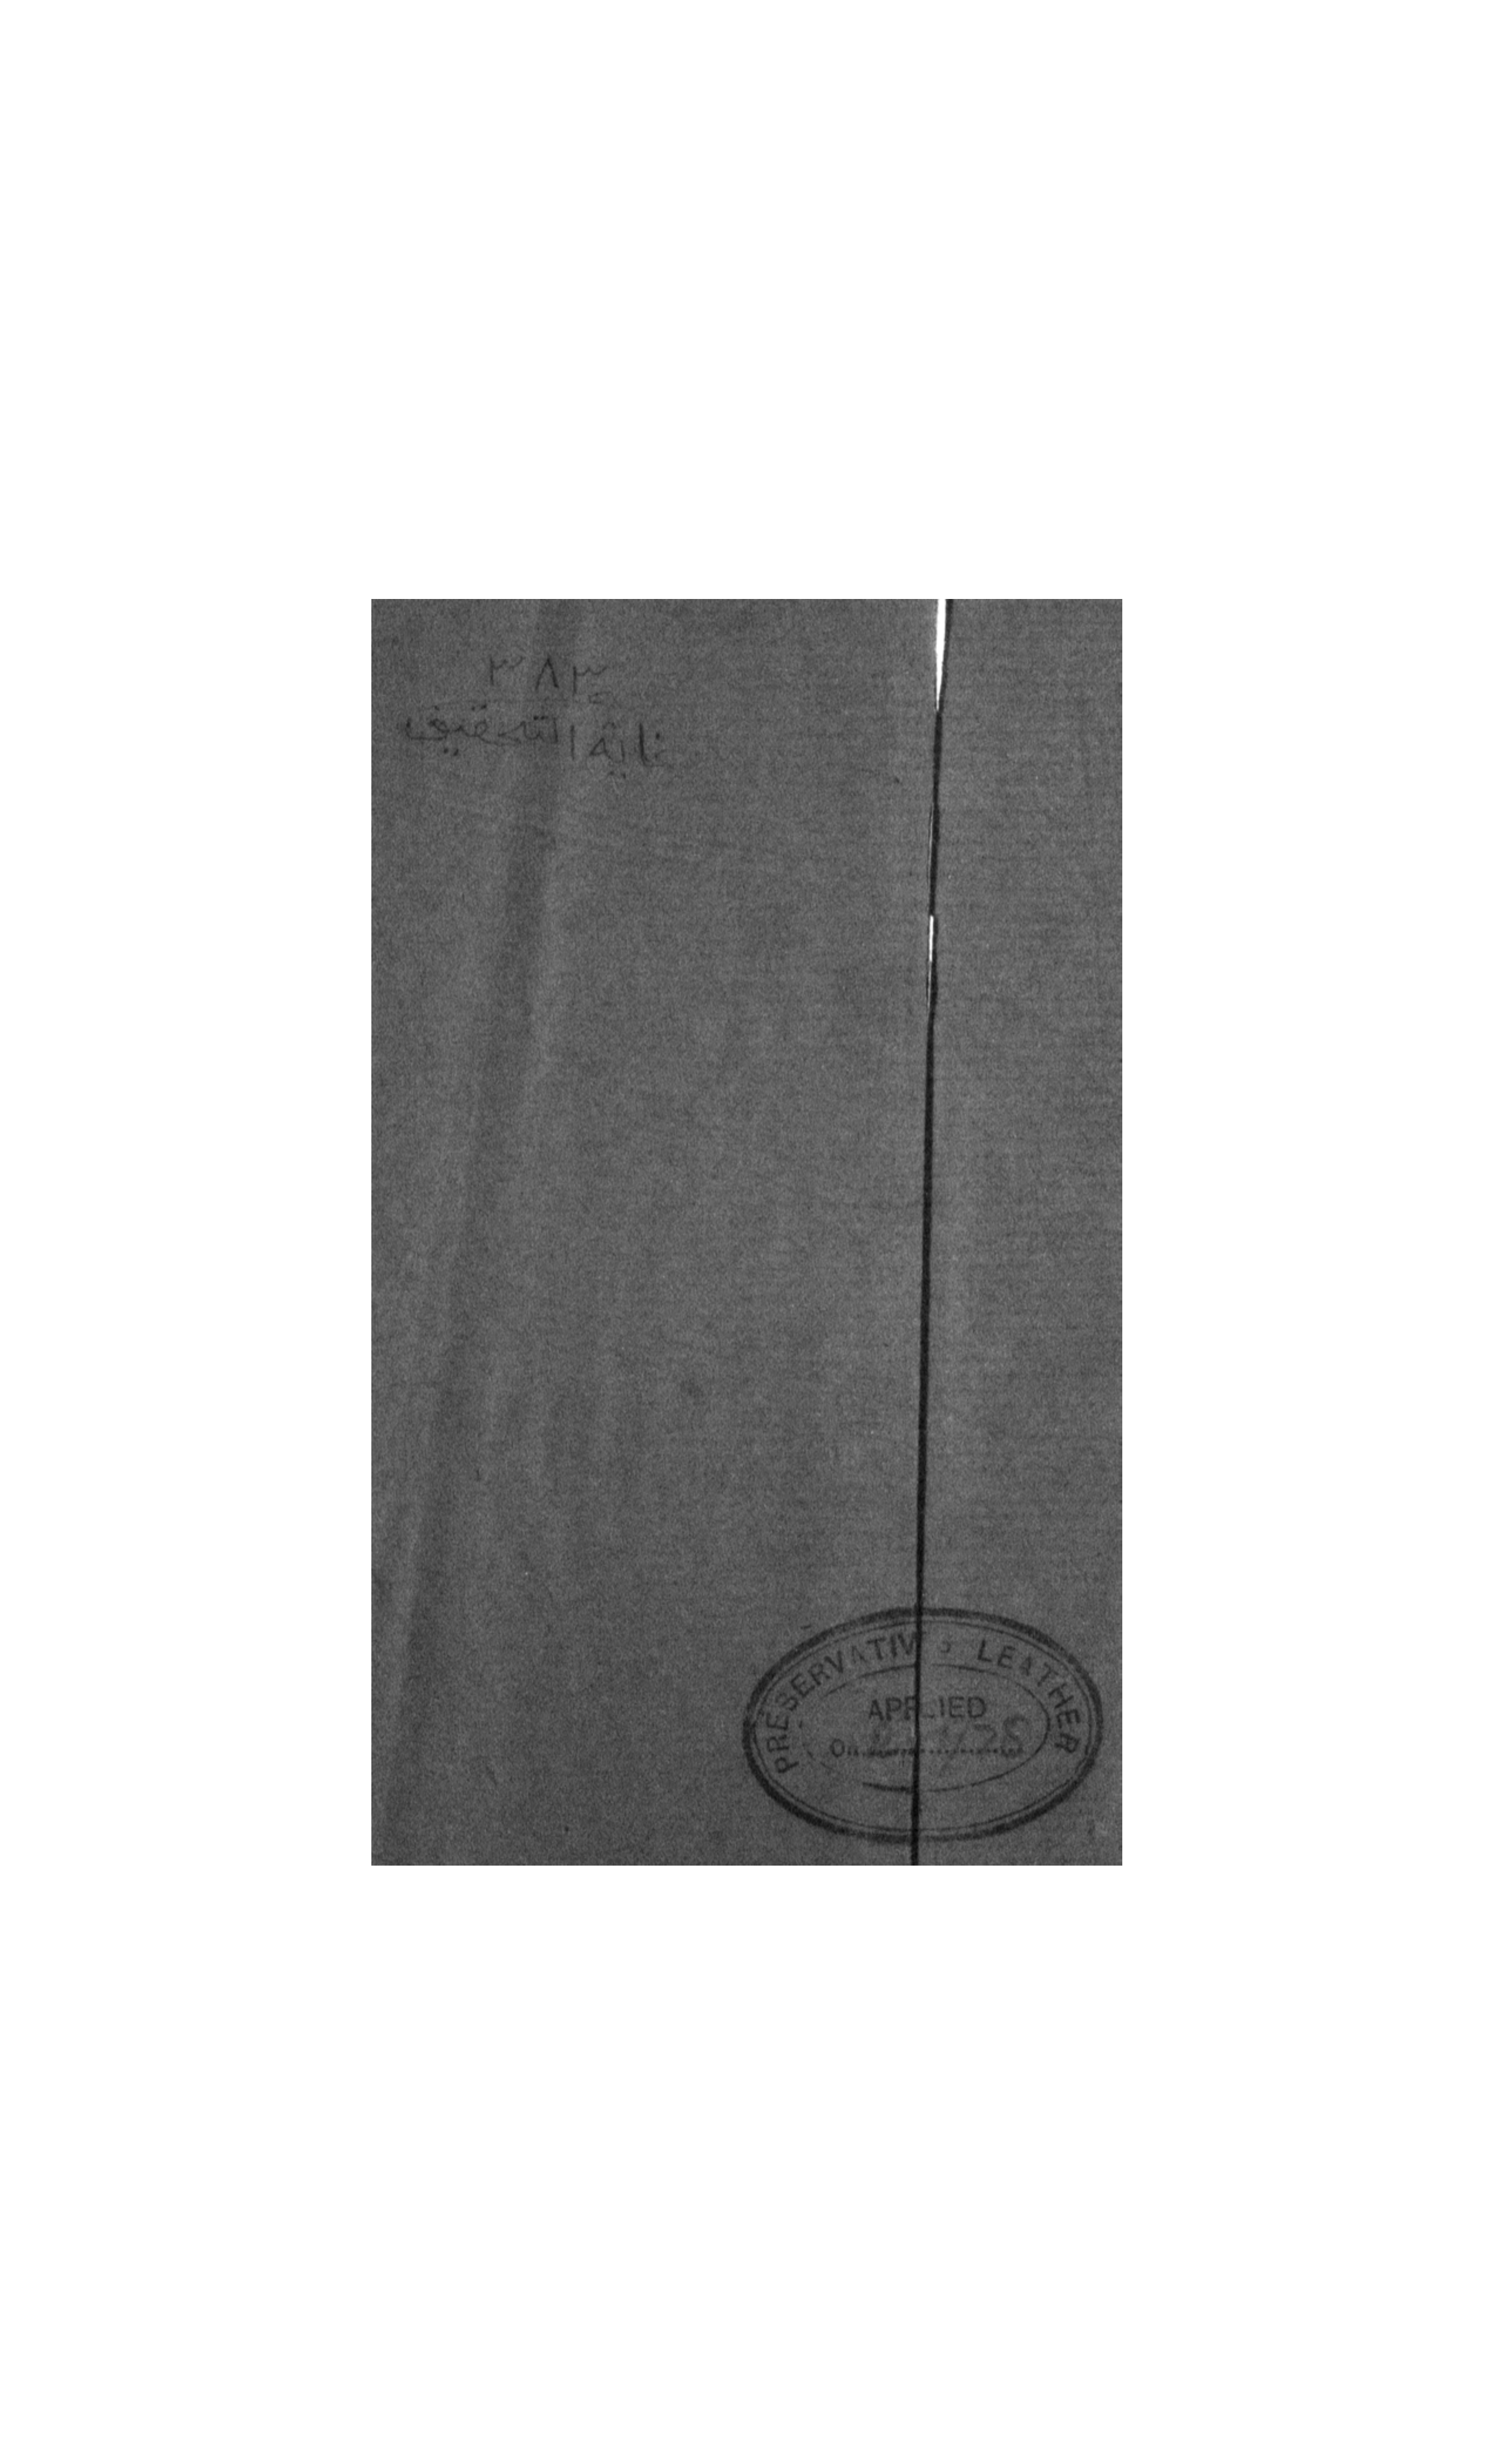 ٣٨٣
غاية التحقيق
PRESERVATIVE LEATHER
APPLIED
On